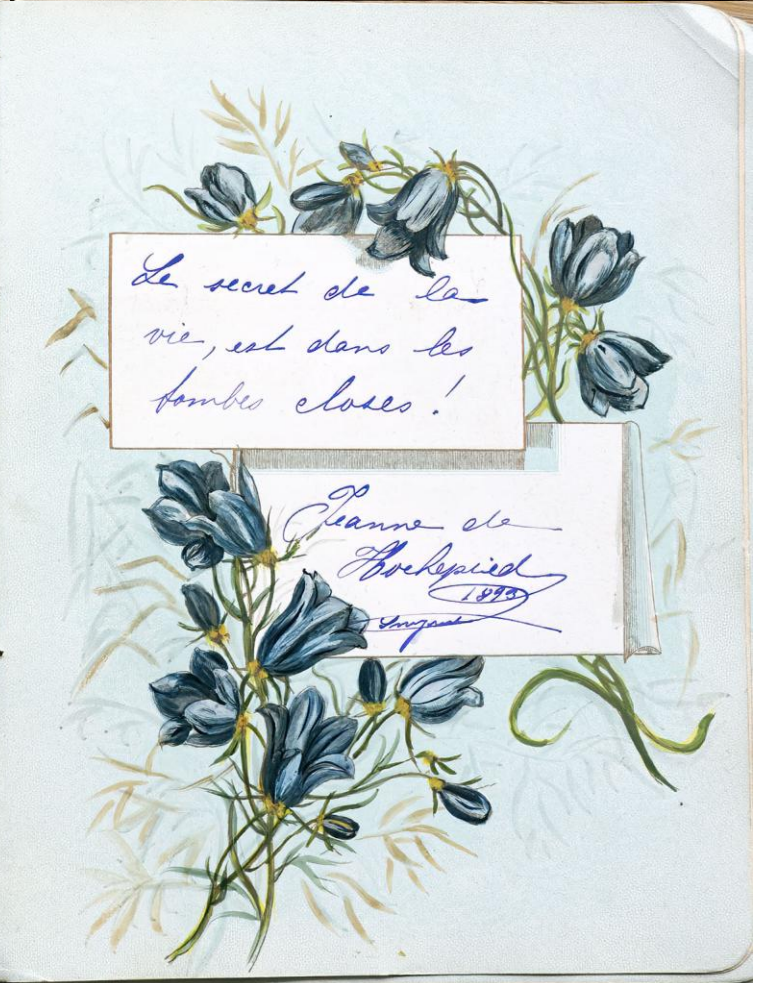 Le secret de la
vie, est dans les
tombes closes !
Jeanne de
Hochepied
1893